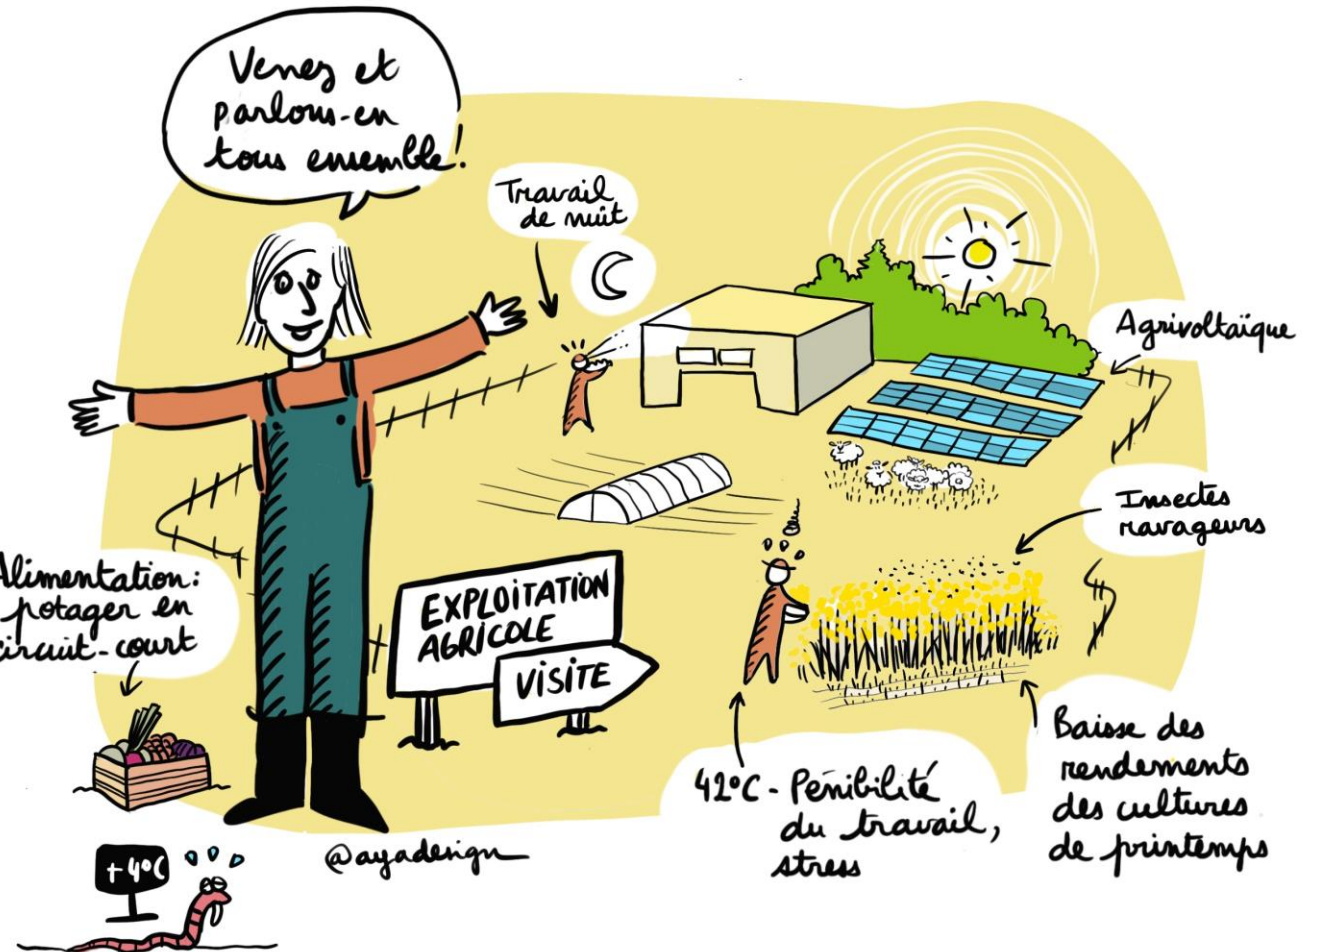 Venez et
parlons-en
tous ensemble!
Travail
de nuit
Agrivoltaïque
Insectes
ravageurs
Alimentation:
potager en
circuit-court
EXPLOITATION
AGRICOLE
VISITE
42°C - Pénibilité
du travail,
stress
Baisse des
rendements
des cultures
de printemps
@ayadesign
+4°C